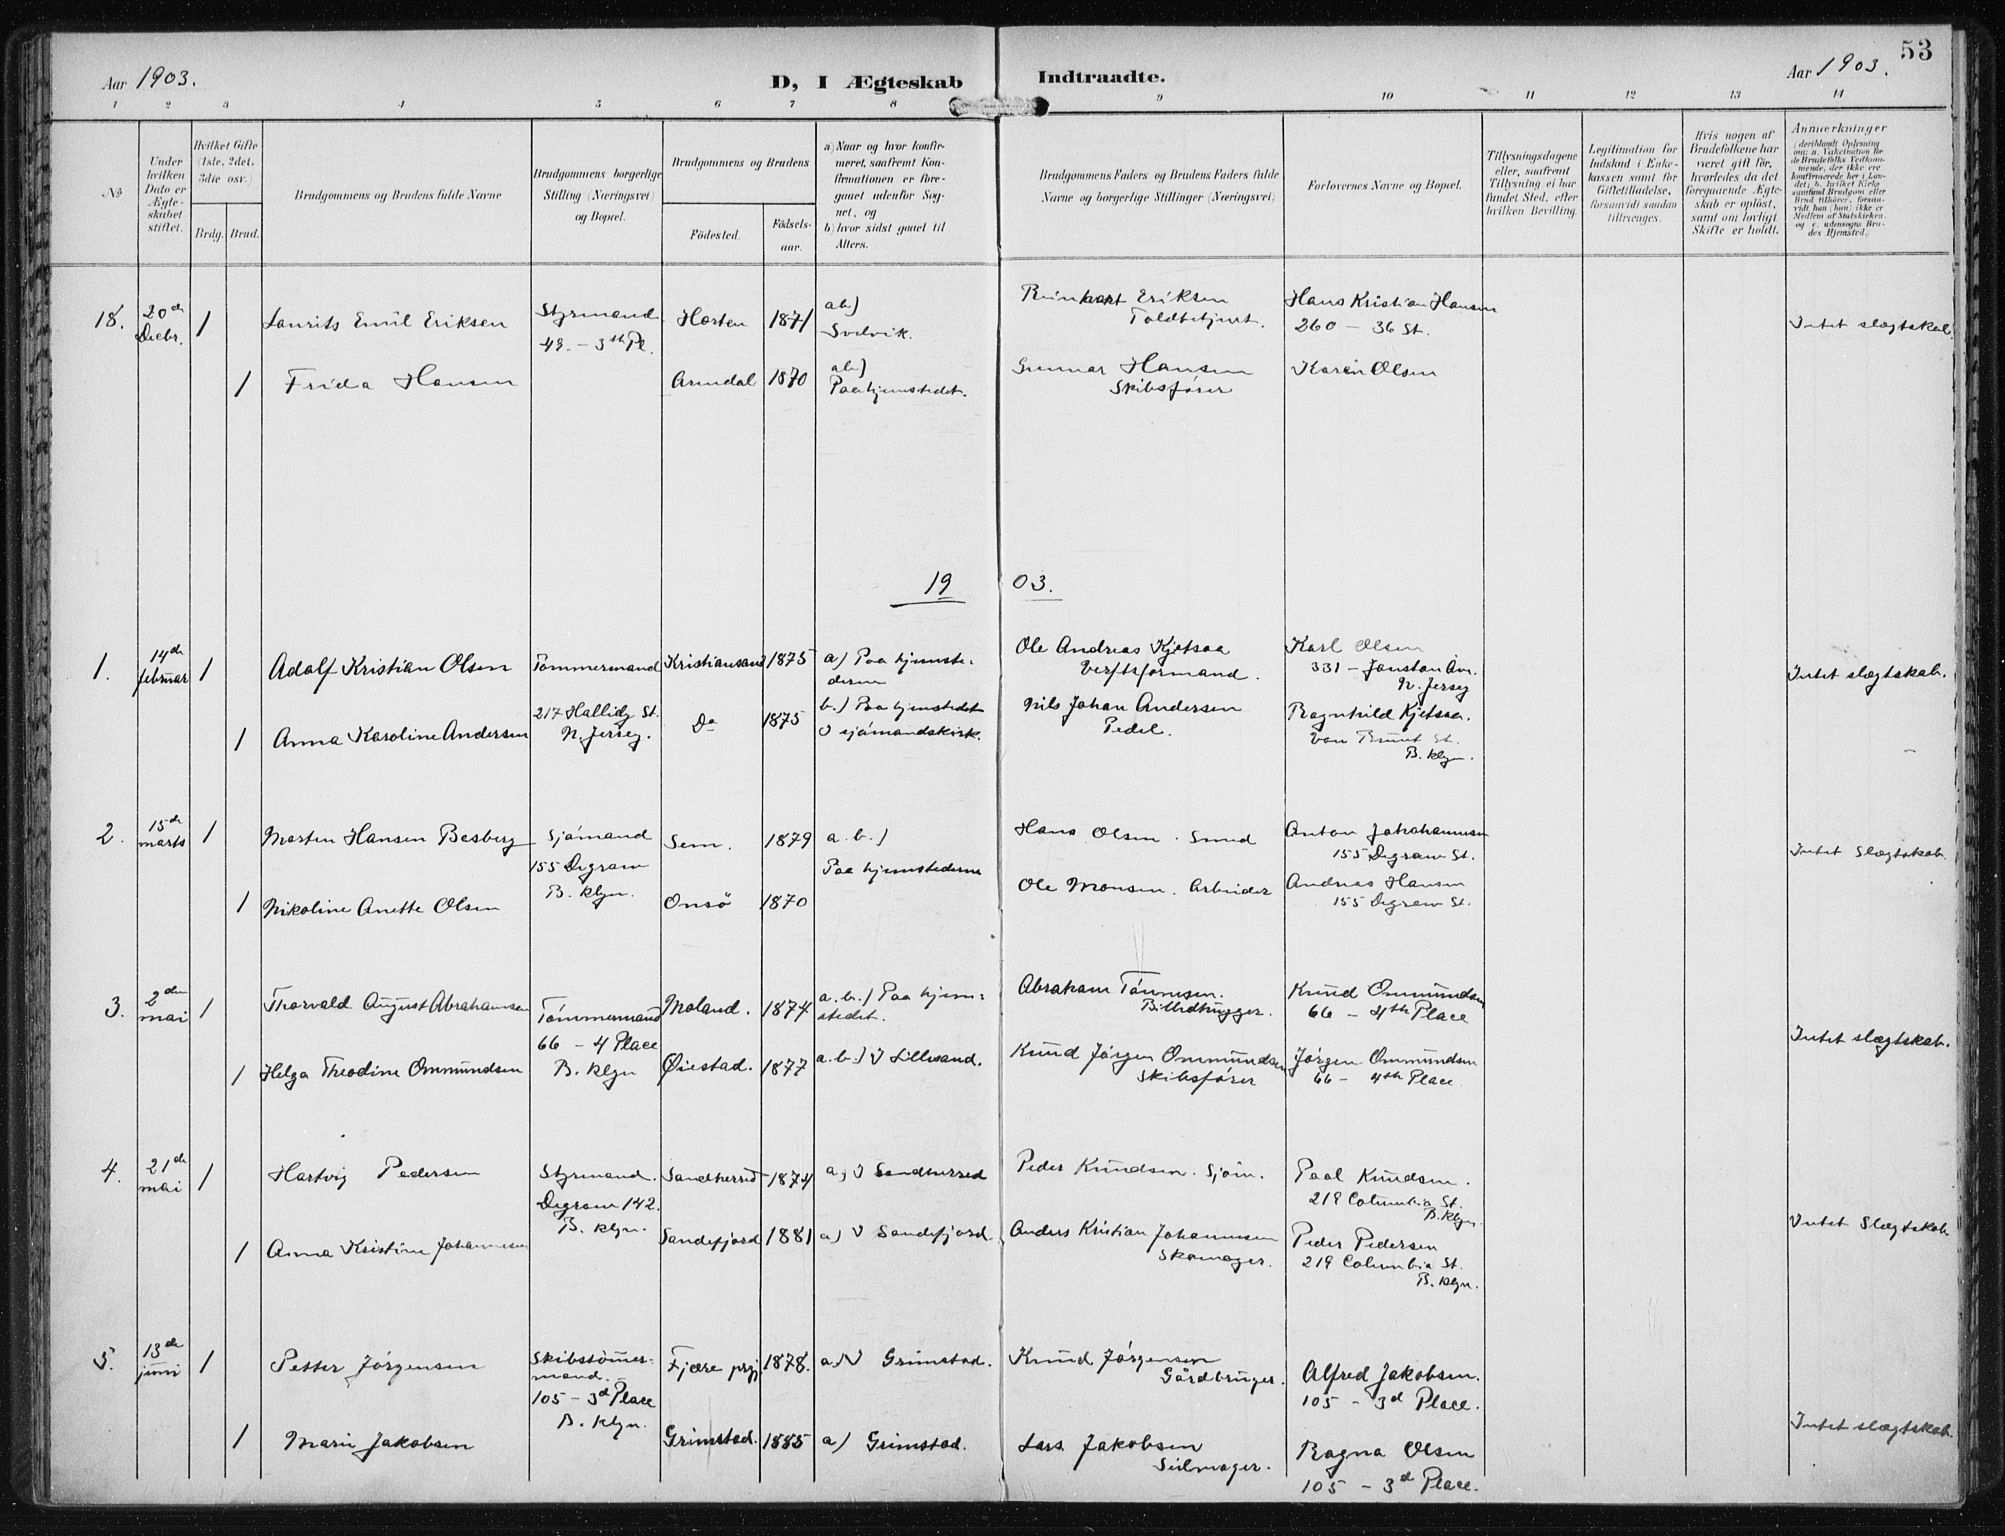 53
Aar 1903.
D, I Ægteskab Indtraadte.
Aar 1903.
1 2 3 4 5 6 7 8 9 10 11 12 13 14
No
Under hvilken Dato er Ægteskabet stiftet.
Hvilket Gifte (1ste, 2det, 3die osv.)
Brdg. Brud.
Brudgommens og Brudens fulde Navne
Brudgommens borgerlige Stilling (Næringsvei) og Bopæl.
Brudgommens og Brudens
Fødested.
Fødselsaar.
a) Naar og hvor konfirmeret, saafremt Konfirmationen er foregaaet udenfor Sognet, og
b) hvor sidst gaaet til Alters.
Brudgommens Faders og Brudens Faders fulde Navne og borgerlige Stillinger (Næringsvei)
Forlovernes Navne og Bopæl.
Tillysningsdagene eller, saafremt Tillysning ei har fundet Sted, efter hvilken Bevilling.
Legitimation for Indskud i Enkekassen samt for Giftetilladelse, forsaavidt saadan tiltrænges.
Hvis nogen af Brudefolkene har været gift før, hvorledes da det foregaaende Ægteskab er opløst, samt om lovligt Skifte er holdt.
Anmerkninger
(deriblandt Oplysning om: a. Vakcination for de Brudefolks Vedkommende, der ikke ere konfirmerede her i Landet; b. hvilket Kirkesamfund Brudgom eller Brud tilhører, forsaavidt han (hun) ikke er Medlem af Statskirken, og c. udensogns Brudes Hjemsted.)
18. 20de Decbr. 1 Laurits Emil Eriksen
Styrmand
49 - 3th Pl.
Horten 1871
ab)
Svelvik.
Reinhart Eriksen
Toldbetjent.
Hans Kristian Hansen
260 - 36 St.
Intet slægtskab
1 Frida Hansen
Arendal 1870
ab)
Paa hjemstedet.
Gunnar Hansen
Skibsfører
Karen Olsen
1903.
1. 14de februar 1 Adolf Kristian Olsen
Tømmermand
217 Hallidy St.
N. Jersey.
Kristiansand 1875
a) Paa hjemstederne
Ole Andreas Kjetsaa
Verftsformand.
Karl Olsen
331 - Jonston Av.
N. Jersey
Intet slægtskab.
1 Anna Karoline Andersen
Do 1875
b.) Paa hjemstedet
I sjømandskirk.
Nils Johan Andersen
Pedel.
Ragnhild Kjetsaa.
Van Brunt St.
B. klyn.
2. 15de marts 1 Morten Hansen Basberg
Sjømand
155 Degraw
B. klyn.
Sem. 1879
a.b.)
Paa hjemstederne
Hans Olsen. Smed
Anton Johohannesen
155 Degraw St.
Intet Slægtskab.
1 Nikoline Anette Olsen
Onsø 1870
Ole Monsen. Arbeider
Andreas Hansen
155 Degraw St.
3. 2den mai 1 Thorvald August Abrahamsen
Tømmermand
66 - 4 Place
B. klyn
Moland. 1874
a.b.) Paa hjemstedet.
Abraham Tønnesen.
Billedhugger.
Knud Ommundsen
66 - 4th Place
Intet slægtskab.
1 Helga Theodine Ommundsen
Øiestad. 1877
a.b.) I Lillesand.
Knud Jørgen Ommundsen
Skibsfører
Jørgen Ommundsen
66 - 4th Place
4. 21de mai 1 Hartvig Pedersen
Styrmand.
Degraw 142.
B. klyn.
Sandherred 1874
a) I Sandherred
Peder Knudsen. Sjøm.
Paal Knudsen.
219 Columbia St.
B. klyn.
Intet Slægtskab
1 Anna Kristine Johannesen
Sandefjord 1881
a) I Sandefjord.
Anders Kristian Johannesen
Skomager.
Peder Pedersen
219 Columbia St.
B. klyn.
5. 13de juni 1 Petter Jørgensen
Skibstømmermand.
105 - 3d Place
B. klyn.
Fjære prgj. 1878.
a.) I Grimstad.
Knud Jørgensen
Gårdbruger.
Alfred Jakobsen.
105 - 3d Place.
Intet slægtskab.
1 Marie Jakobsen
Grimstad. 1885
a) Grimstad.
Lars Jakobsen
Seilmager.
Ragna Olsen
105 - 3d Place.